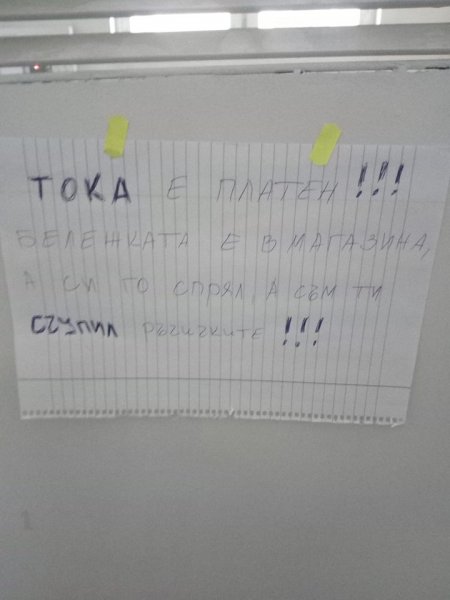 ТОКА Е ПЛАТЕН!!!
БЕЛЕЖКАТА Е В МАГАЗИНА,
А СИ ГО СПРЯЛ, А СЪМ ТИ
СЧУПИЛ РЪЧИЧКИТЕ !!!